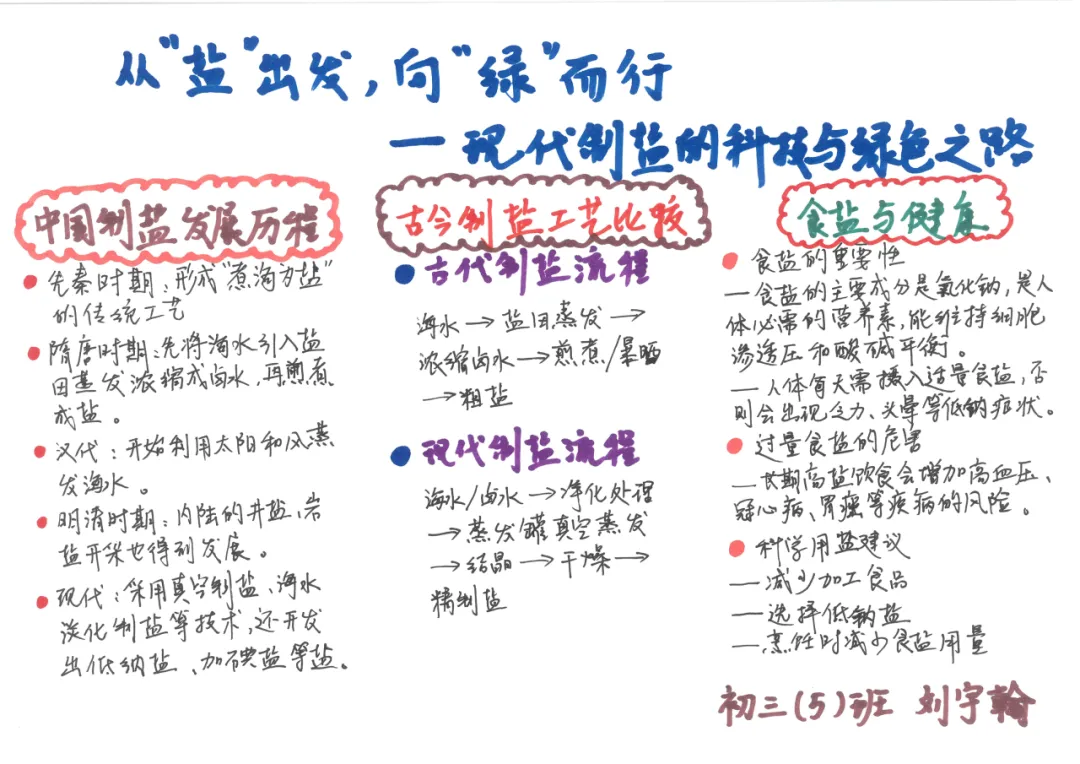 从“盐”出发，向“绿”而行
— 现代制盐的科技与绿色之路
中国制盐发展历程
先秦时期：形成“煮海为盐”
的传统工艺
隋唐时期：先将海水引入盐
田蒸发浓缩成卤水，再煎煮
成盐。
汉代：开始利用太阳和风蒸
发海水。
明清时期：内陆的井盐、岩
盐开采也得到发展。
现代：采用真空制盐、海水
淡化制盐等技术，还开发
出低纳盐、加碘盐等盐。
古今制盐工艺比较
古代制盐流程
海水→盐田蒸发→
浓缩卤水→煎煮/暴晒
→粗盐
现代制盐流程
海水/卤水→净化处理
→蒸发罐真空蒸发
→结晶→干燥→
精制盐
食盐与健康
食盐的重要性
—食盐的主要成分是氯化钠，是人
体必需的营养素，能维持细胞
渗透压和酸碱平衡。
—人体每天需摄入适量食盐，否
则会出现乏力、头晕等低钠症状。
过量食盐的危害
—长期高盐饮食会增加高血压、
冠心病、胃癌等疾病的风险。
科学用盐建议
—减少加工食品
—选择低钠盐
—烹饪时减少食盐用量
初三(5)班 刘宇翰